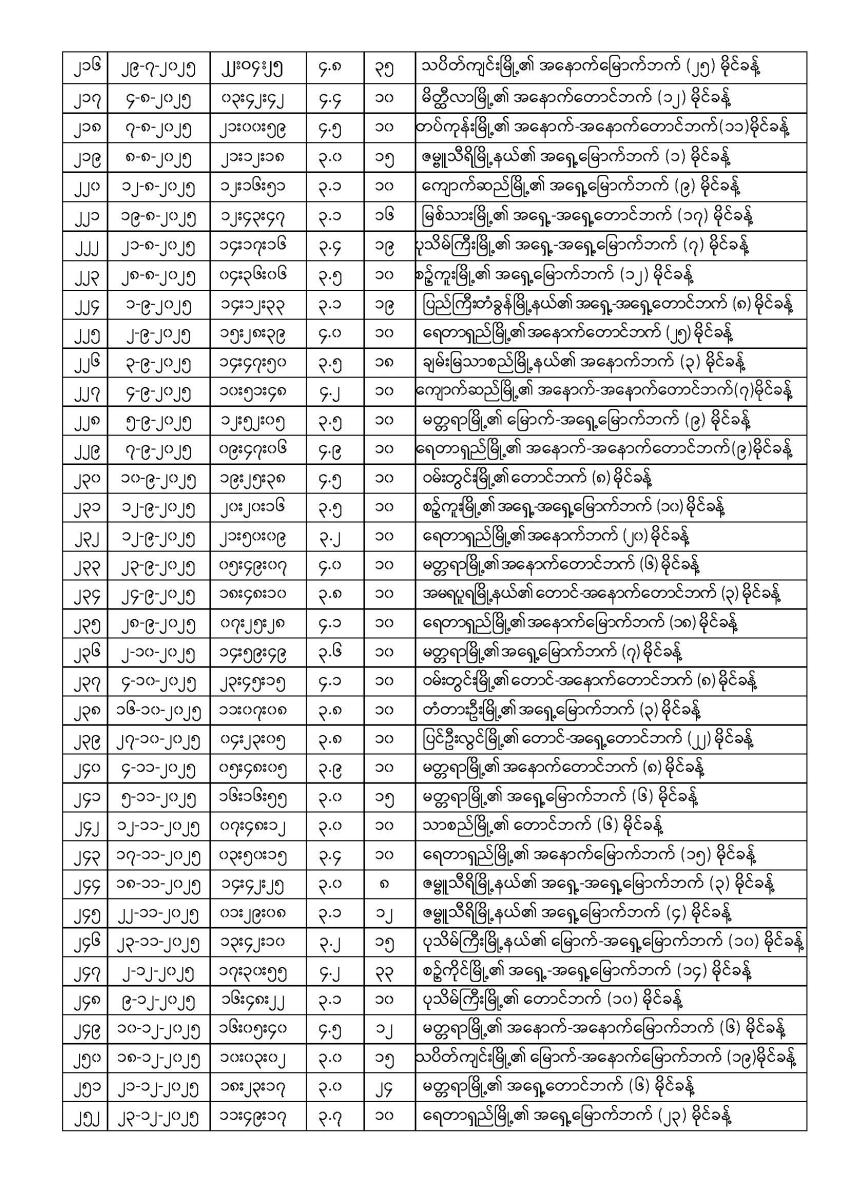 ၂၁၆ ၂၉-၇-၂၀၂၅ ၂၂း၀၄း၂၅ ၄.၈ ၃၅ သပိတ်ကျင်းမြို့၏ အနောက်မြောက်ဘက် (၂၅) မိုင်ခန့်
၂၁၇ ၄-၈-၂၀၂၅ ၀၃း၄၂း၄၂ ၄.၄ ၁၀ မိတ္ထီလာမြို့၏ အနောက်တောင်ဘက် (၁၂) မိုင်ခန့်
၂၁၈ ၇-၈-၂၀၂၅ ၂၁း၀၀း၅၉ ၄.၅ ၁၀ တပ်ကုန်းမြို့၏ အနောက်-အနောက်တောင်ဘက်(၁၁)မိုင်ခန့်
၂၁၉ ၈-၈-၂၀၂၅ ၂၁း၁၂း၁၈ ၃.၀ ၁၅ ဇမ္ဗူသီရိမြို့နယ်၏ အရှေ့မြောက်ဘက် (၁) မိုင်ခန့်
၂၂၀ ၁၂-၈-၂၀၂၅ ၁၂း၁၆း၅၁ ၃.၁ ၁၀ ကျောက်ဆည်မြို့၏ အရှေ့မြောက်ဘက် (၉) မိုင်ခန့်
၂၂၁ ၁၉-၈-၂၀၂၅ ၁၂း၄၃း၄၇ ၃.၁ ၁၆ မြစ်သားမြို့၏ အရှေ့-အရှေ့တောင်ဘက် (၁၇) မိုင်ခန့်
၂၂၂ ၂၁-၈-၂၀၂၅ ၁၄း၁၇း၁၆ ၃.၄ ၁၉ ပုသိမ်ကြီးမြို့၏ အရှေ့-အရှေ့မြောက်ဘက် (၇) မိုင်ခန့်
၂၂၃ ၂၈-၈-၂၀၂၅ ၀၄း၃၆း၀၆ ၃.၅ ၁၀ စဉ့်ကူးမြို့၏ အရှေ့မြောက်ဘက် (၁၂) မိုင်ခန့်
၂၂၄ ၁-၉-၂၀၂၅ ၁၄း၁၂း၃၃ ၃.၁ ၁၉ ပြည်ကြီးတံခွန်မြို့နယ်၏ အရှေ့-အရှေ့တောင်ဘက် (၈) မိုင်ခန့်
၂၂၅ ၂-၉-၂၀၂၅ ၁၅း၂၈း၃၉ ၄.၀ ၁၀ ရေတာရှည်မြို့၏ အနောက်တောင်ဘက် (၂၅) မိုင်ခန့်
၂၂၆ ၃-၉-၂၀၂၅ ၁၄း၄၇း၅၀ ၃.၅ ၁၈ ချမ်းမြသာစည်မြို့နယ်၏ အနောက်ဘက် (၃) မိုင်ခန့်
၂၂၇ ၄-၉-၂၀၂၅ ၁၀း၅၁း၄၈ ၄.၂ ၁၀ ကျောက်ဆည်မြို့၏ အနောက်-အနောက်တောင်ဘက်(၇)မိုင်ခန့်
၂၂၈ ၅-၉-၂၀၂၅ ၁၂း၅၂း၀၅ ၃.၅ ၁၀ မတ္တရာမြို့၏ မြောက်-အရှေ့မြောက်ဘက် (၉) မိုင်ခန့်
၂၂၉ ၇-၉-၂၀၂၅ ၀၉း၄၇း၀၆ ၄.၉ ၁၀ ရေတာရှည်မြို့၏ အနောက်-အနောက်တောင်ဘက်(၉)မိုင်ခန့်
၂၃၀ ၁၀-၉-၂၀၂၅ ၁၉း၂၅း၃၈ ၄.၅ ၁၀ ဝမ်းတွင်းမြို့၏ တောင်ဘက် (၈) မိုင်ခန့်
၂၃၁ ၁၂-၉-၂၀၂၅ ၂၀း၂၀း၁၆ ၃.၅ ၁၀ စဉ့်ကူးမြို့၏ အရှေ့-အရှေ့မြောက်ဘက် (၁၀) မိုင်ခန့်
၂၃၂ ၁၂-၉-၂၀၂၅ ၂၁း၅၀း၀၉ ၃.၂ ၁၀ ရေတာရှည်မြို့၏ အနောက်ဘက် (၂၀) မိုင်ခန့်
၂၃၃ ၂၃-၉-၂၀၂၅ ၀၅း၄၉း၀၇ ၄.၀ ၁၀ မတ္တရာမြို့၏ အနောက်တောင်ဘက် (၆) မိုင်ခန့်
၂၃၄ ၂၄-၉-၂၀၂၅ ၁၈း၄၈း၁၀ ၃.၈ ၁၀ အမရပူရမြို့နယ်၏ တောင်-အနောက်တောင်ဘက် (၃) မိုင်ခန့်
၂၃၅ ၂၈-၉-၂၀၂၅ ၀၇း၂၅း၂၈ ၄.၁ ၁၀ ရေတာရှည်မြို့၏ အနောက်မြောက်ဘက် (၁၈) မိုင်ခန့်
၂၃၆ ၂-၁၀-၂၀၂၅ ၁၄း၅၉း၄၉ ၃.၆ ၁၀ မတ္တရာမြို့၏ အရှေ့မြောက်ဘက် (၇) မိုင်ခန့်
၂၃၇ ၄-၁၀-၂၀၂၅ ၂၃း၄၅း၁၅ ၄.၁ ၁၀ ဝမ်းတွင်းမြို့၏ တောင်-အနောက်တောင်ဘက် (၈) မိုင်ခန့်
၂၃၈ ၁၆-၁၀-၂၀၂၅ ၁၁း၀၇း၀၈ ၃.၈ ၁၀ တံတားဦးမြို့၏ အရှေ့မြောက်ဘက် (၃) မိုင်ခန့်
၂၃၉ ၂၇-၁၀-၂၀၂၅ ၀၄း၂၃း၀၅ ၃.၈ ၁၀ ပြင်ဦးလွင်မြို့၏ တောင်-အရှေ့တောင်ဘက် (၂၂) မိုင်ခန့်
၂၄၀ ၄-၁၁-၂၀၂၅ ၀၅း၄၈း၀၅ ၃.၉ ၁၀ မတ္တရာမြို့၏ အနောက်တောင်ဘက် (၈) မိုင်ခန့်
၂၄၁ ၅-၁၁-၂၀၂၅ ၁၆း၁၆း၅၅ ၃.၀ ၁၅ မတ္တရာမြို့၏ အရှေ့မြောက်ဘက် (၆) မိုင်ခန့်
၂၄၂ ၁၂-၁၁-၂၀၂၅ ၀၇း၄၈း၁၂ ၃.၀ ၁၀ သာစည်မြို့၏ တောင်ဘက် (၆) မိုင်ခန့်
၂၄၃ ၁၇-၁၁-၂၀၂၅ ၀၃း၅၀း၁၅ ၃.၄ ၁၀ ရေတာရှည်မြို့၏ အနောက်မြောက်ဘက် (၁၅) မိုင်ခန့်
၂၄၄ ၁၈-၁၁-၂၀၂၅ ၁၄း၄၂း၂၅ ၃.၀ ၈ ဇမ္ဗူသီရိမြို့နယ်၏ အရှေ့-အရှေ့မြောက်ဘက် (၃) မိုင်ခန့်
၂၄၅ ၂၂-၁၁-၂၀၂၅ ၀၁း၂၉း၀၈ ၃.၁ ၁၂ ဇမ္ဗူသီရိမြို့နယ်၏ အရှေ့မြောက်ဘက် (၄) မိုင်ခန့်
၂၄၆ ၂၃-၁၁-၂၀၂၅ ၁၃း၄၂း၁၀ ၃.၂ ၁၅ ပုသိမ်ကြီးမြို့နယ်၏ မြောက်-အရှေ့မြောက်ဘက် (၁၀) မိုင်ခန့်
၂၄၇ ၂-၁၂-၂၀၂၅ ၁၇း၃၀း၅၅ ၄.၂ ၃၃ စဉ့်ကိုင်မြို့၏ အရှေ့-အရှေ့မြောက်ဘက် (၁၄) မိုင်ခန့်
၂၄၈ ၉-၁၂-၂၀၂၅ ၁၆း၄၈း၂၂ ၃.၁ ၁၀ ပုသိမ်ကြီးမြို့၏ တောင်ဘက် (၁၀) မိုင်ခန့်
၂၄၉ ၁၀-၁၂-၂၀၂၅ ၁၆း၀၅း၄၀ ၄.၅ ၁၂ မတ္တရာမြို့၏ အနောက်-အနောက်မြောက်ဘက် (၆) မိုင်ခန့်
၂၅၀ ၁၈-၁၂-၂၀၂၅ ၁၀း၀၃း၀၂ ၃.၀ ၁၅ သပိတ်ကျင်းမြို့၏ မြောက်-အနောက်မြောက်ဘက် (၁၉)မိုင်ခန့်
၂၅၁ ၂၁-၁၂-၂၀၂၅ ၁၈း၂၃း၁၇ ၃.၀ ၂၄ မတ္တရာမြို့၏ အရှေ့တောင်ဘက် (၆) မိုင်ခန့်
၂၅၂ ၂၃-၁၂-၂၀၂၅ ၁၁း၄၉း၁၇ ၃.၇ ၁၀ ရေတာရှည်မြို့၏ အရှေ့မြောက်ဘက် (၂၃) မိုင်ခန့်